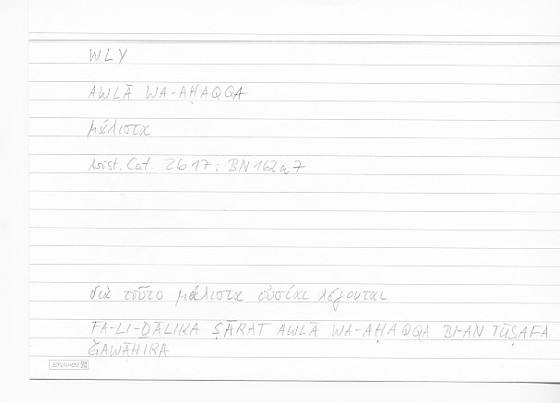 WLY
AWLĀ WA-AḤAQQA
μάλιστα
Arist. Cat. 2b17: BN 162a7
διὰ τοῦτο μάλιστα οὐσίαι λέγονται
FA-LI-ḎĀLIKA ṢĀRAT AWLĀ WA-AḤAQQA BI-AN TŪṢAFA
ǦAWĀHIRA